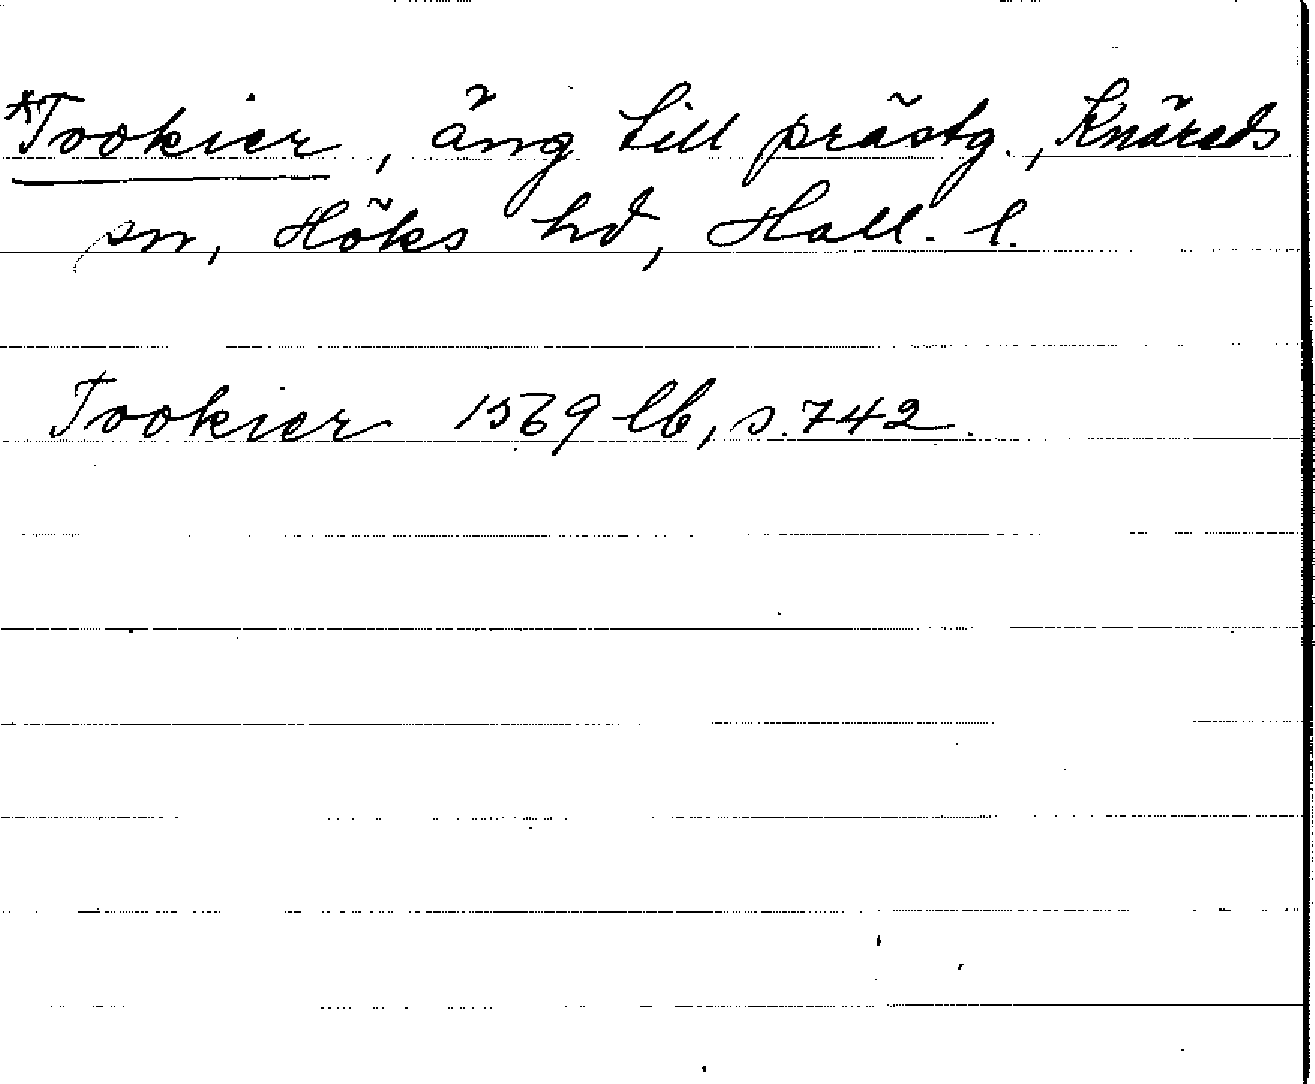 *Tookier, äng till prästg., Knäreds
sn, Höks hd, Hall. l.
Tookier 1569 lb, s. 742.